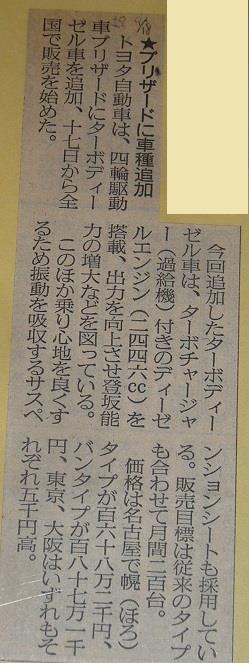 ★ブリザードに車種追加
トヨタ自動車は、四輪駆動
車ブリザードにターボディー
ゼル車を追加、十七日から全
国で販売を始めた。
今回追加したターボディー
ゼル車は、ターボチャージャ
ー（過給機）付きのディーゼ
ルエンジン（二四四六cc）を
搭載、出力を向上させ登坂能
力の増大などを図っている。
このほか乗り心地を良くす
るため振動を吸収するサスペ
ンションシートも採用してい
る。販売目標は従来のタイプ
も合わせて月間二百台。
価格は名古屋で幌（ほろ）
タイプが百六十八万二千円、
バンタイプが百八十七万一千
円、東京、大阪はいずれもそ
れぞれ五千円高。